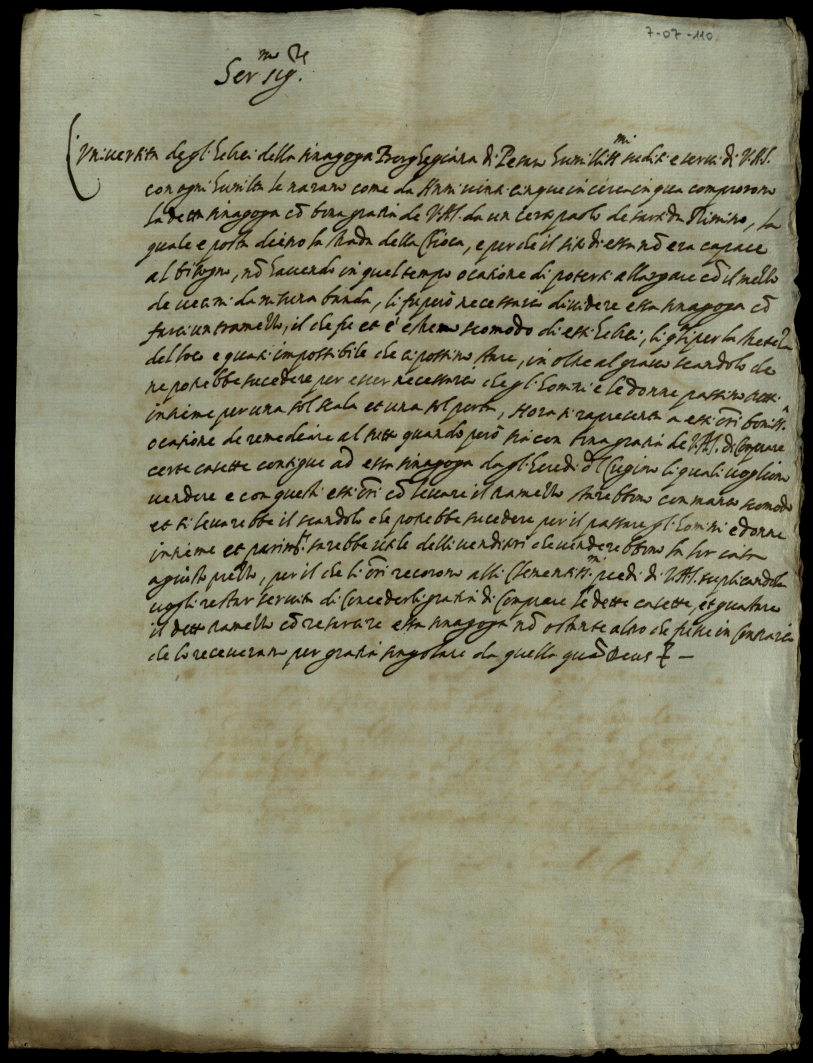 7-07-110
Ser.mo Sig.re
Università degl'Ebrei della sinagoga di Pesaro humiliss.mi suditi e servi di V.A.S.
con ogni humiltà le narano come da Anni vinti cinque in circa comprorono
la detta sinagoga cõ bona gratia de V.A.S. da un certo paolo de Rimino, la
quale e posta dietro la strada della Chioca, e perche il sito di essa nõ era capace
al bisogno, nõ havendo in quel tempo ocasione di potersi allargare cõ il mello
de vicini da nisuna banda, li fu però necessario dividere essa sinagoga cõ
farvi un tramello, il che fu et è estremo scomodo di essi hebrei, li q.li per la stretezza
del loco e quasi impossibile che ci possino stare, in oltre al grave scandolo che
ne potrebbe sucedere per esser necessario che gl'homini e le donne passino tutti
insieme per una sol scala et una sol porta, Hora si rapresenta a essi ori boniss.a
ocasione de remedeiare al tutto quando però sia con bona gratia de V.A.S. di Comprare
certe casette contigue ad essa sinagoga dagl'heredi li quali vogliono
vendere e con questi essi ori cõ levare il tramello starebbono con manco scomodo
et si levarebbe il scandolo che potrebbe sucedere per il passare gl'homini e donne
insieme et parim.te sarebbe utile delli venditori che venderebbono la lor casa
a giusto prezzo, per il che li ori recorono alli Clementiss.mi piedi di V.A.S. suplicandola
vogli restar servita di Concederli gratia di Comprare le dette casette, et guastare
il detto tramello cõ reservare essa sinagoga nõ ostante altro che fusse in Contrario
che lo receverano per gratia singolare da quella quã Deus &